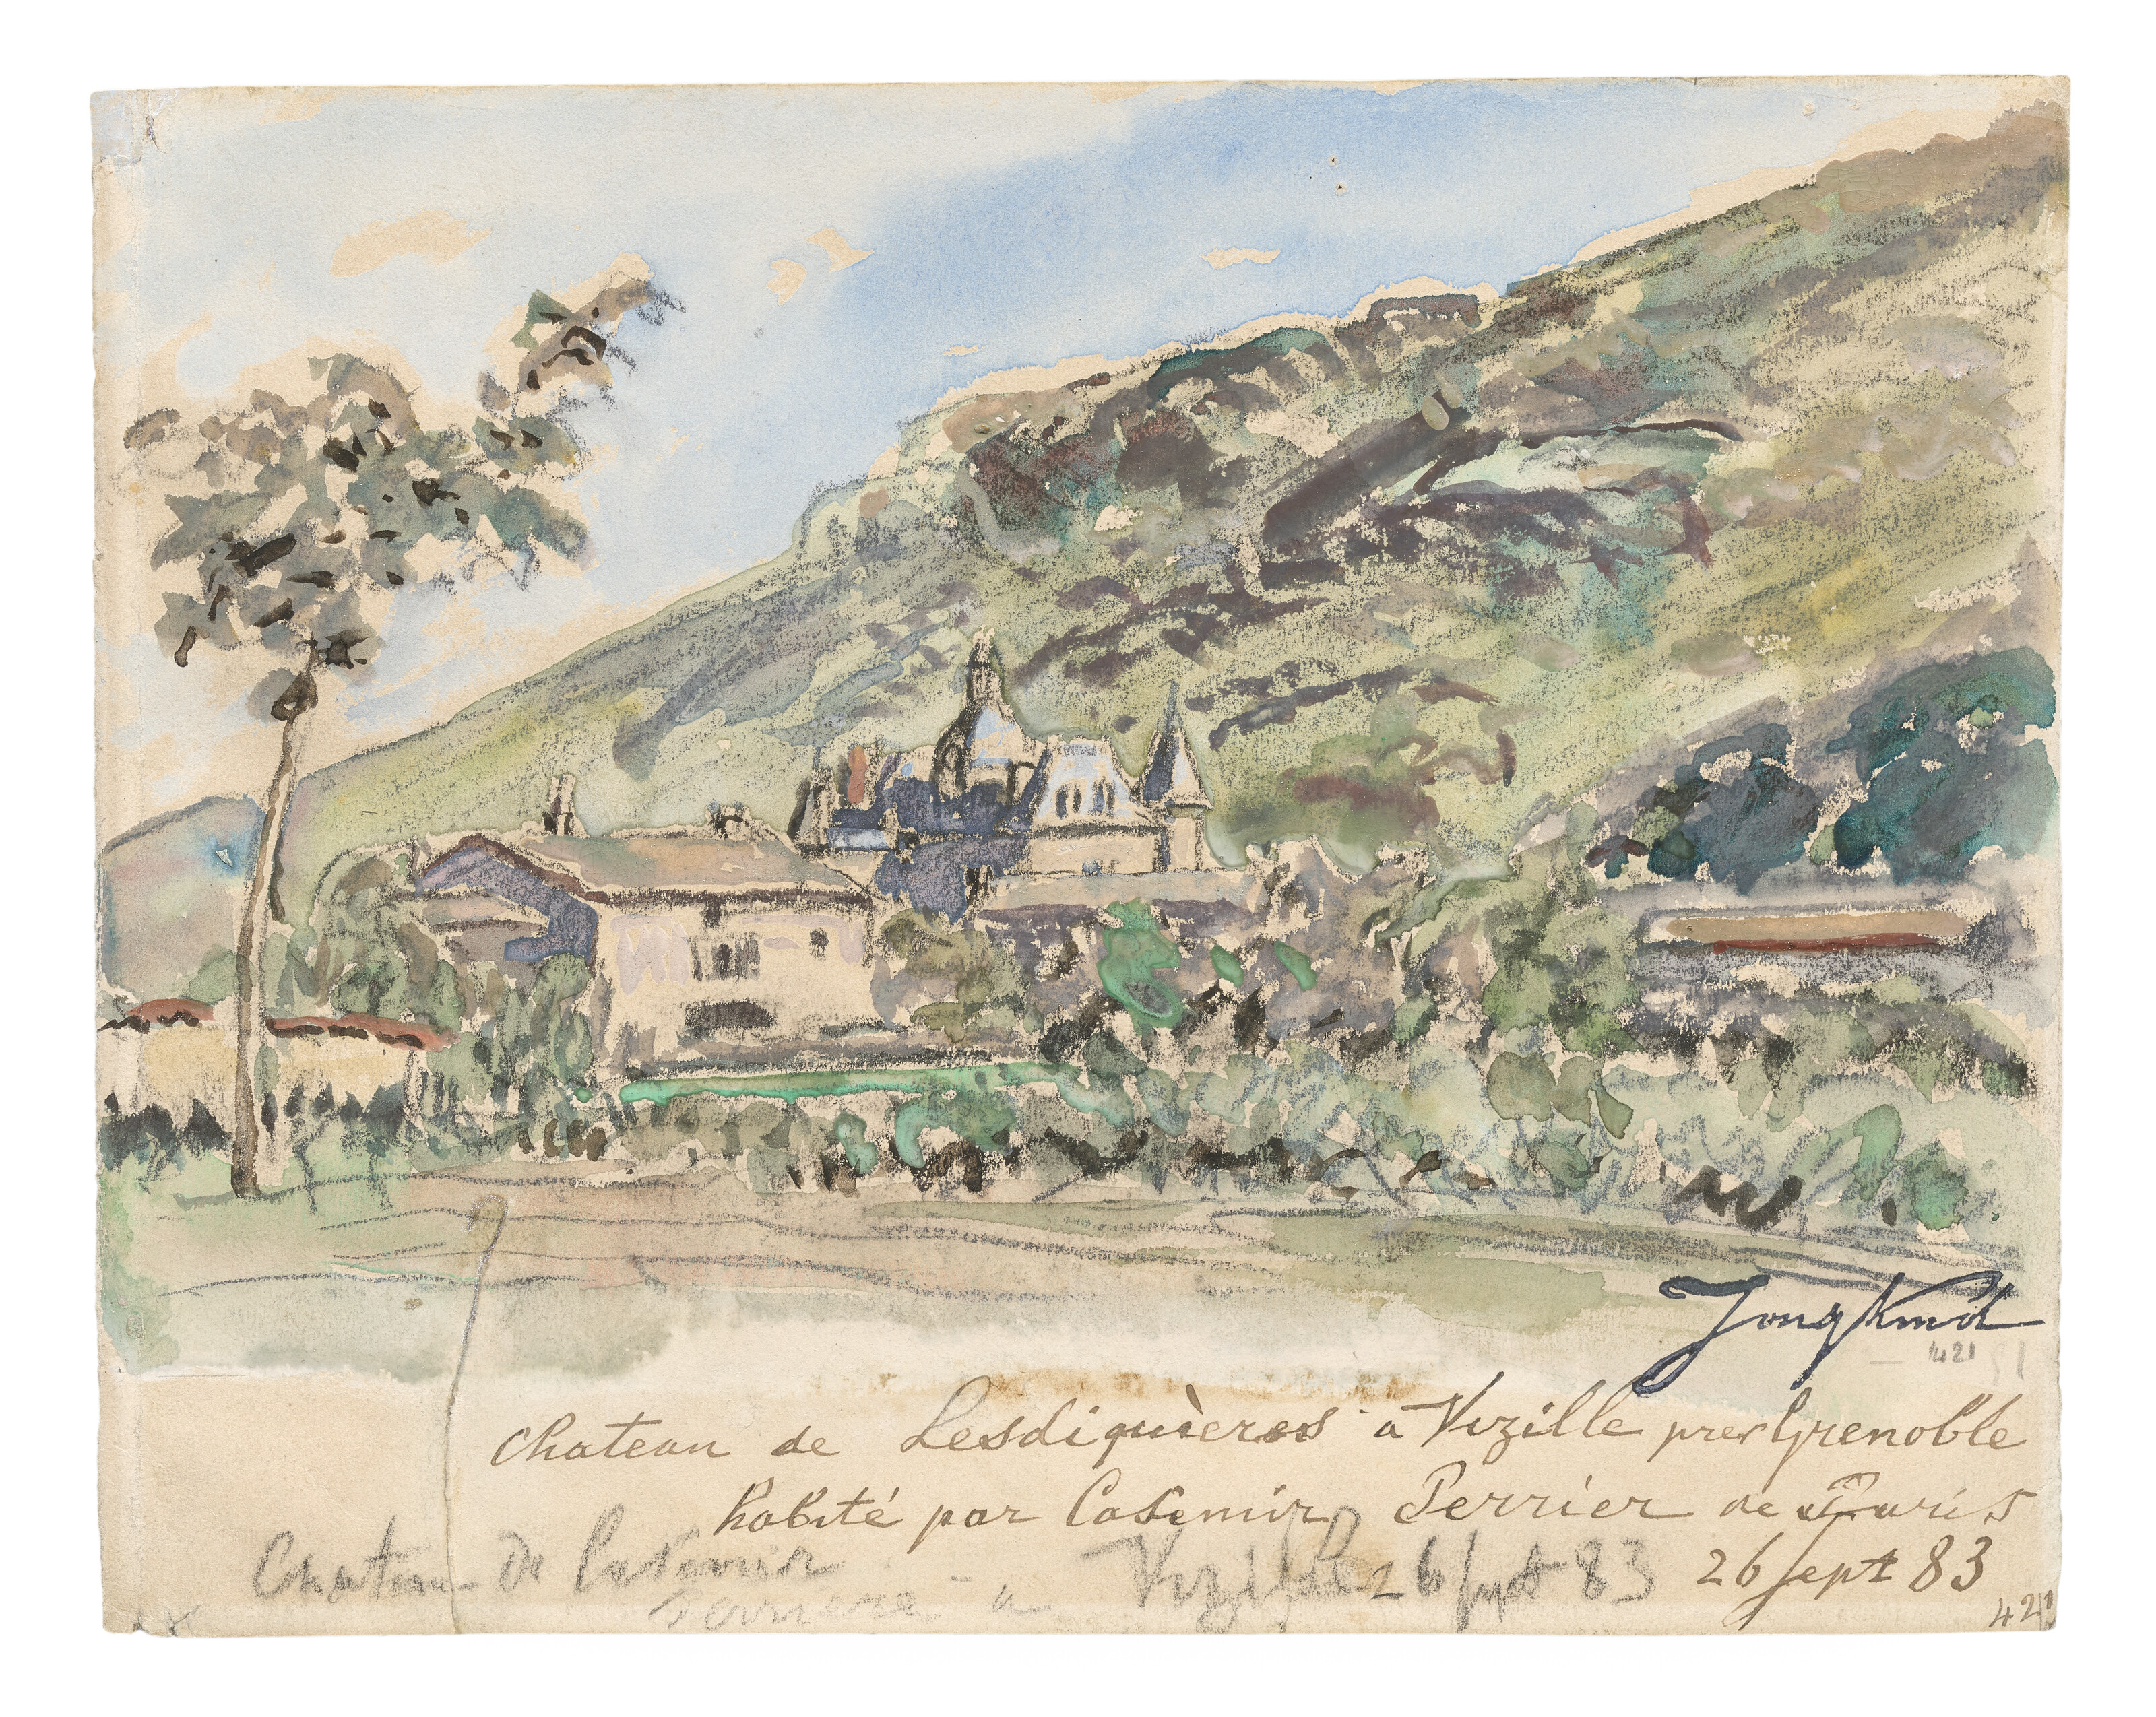 Jongkind
421
Chateau de Lesdiguières a Vizille pres Grenoble
habité par Casemir Perrier de Paris
26 sept 83
Chateau de Casemir
Perriere a Vizille 26 sept 83
421